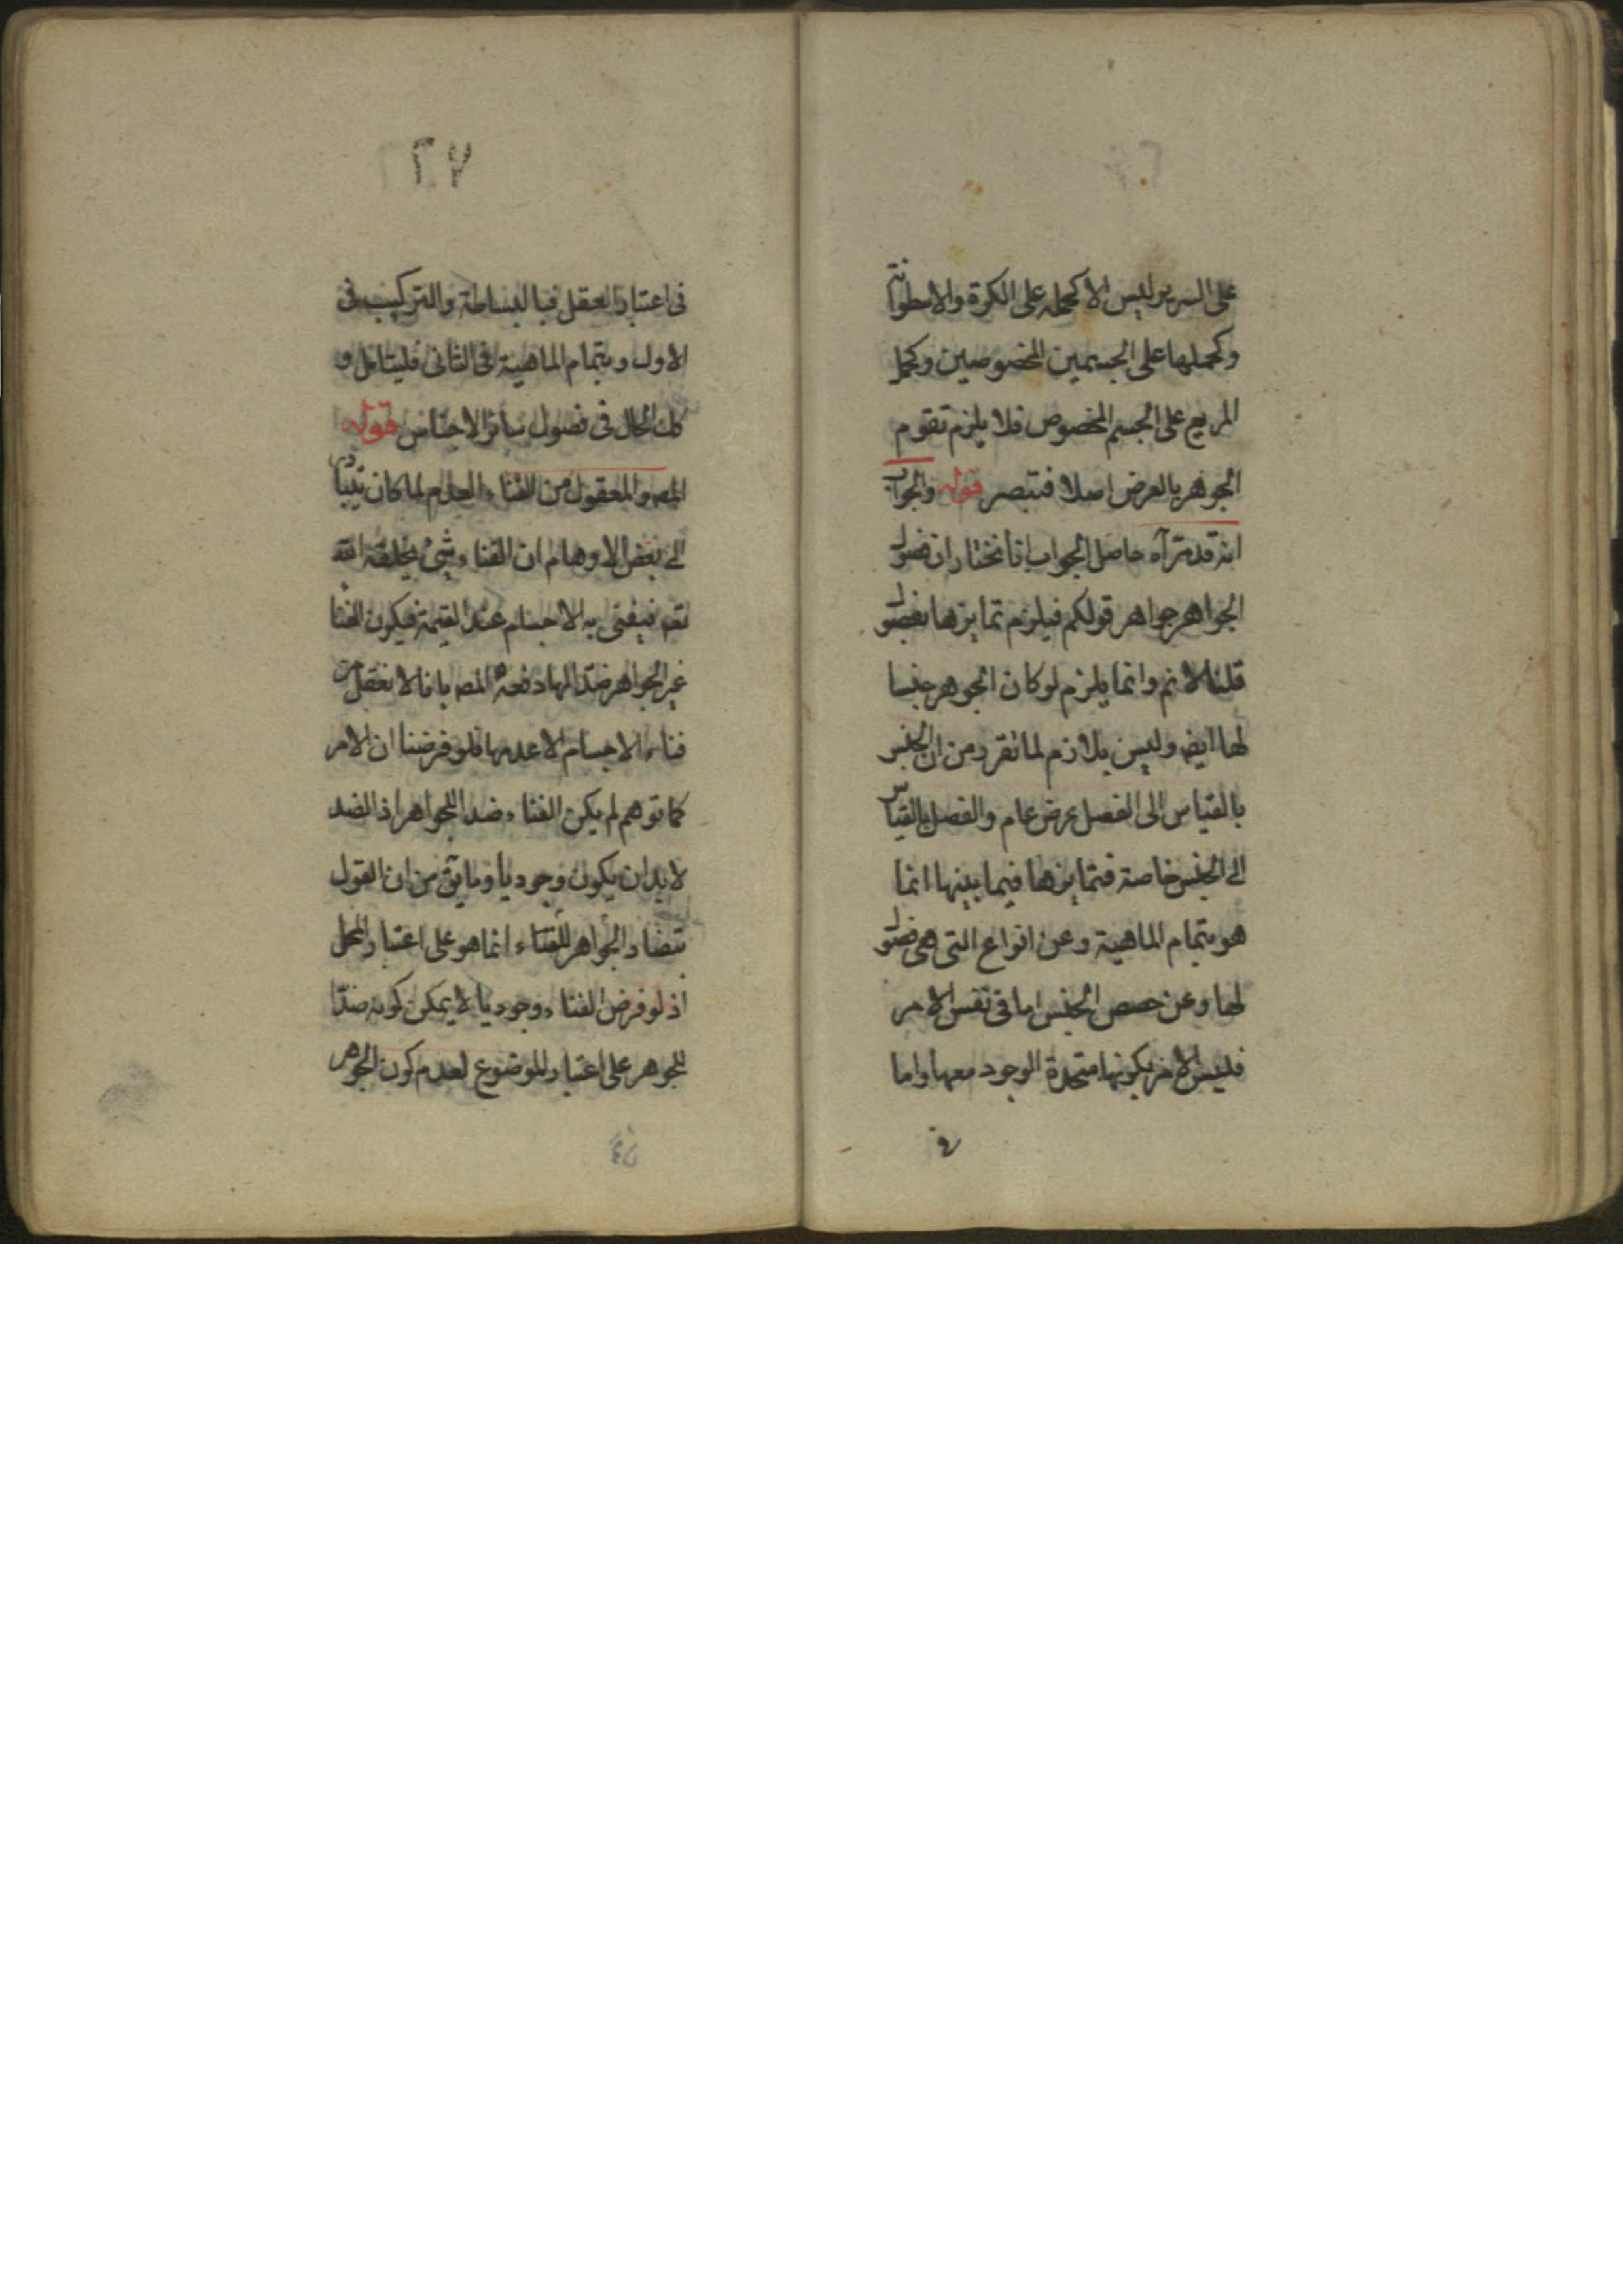 على السرير ليس الا كحمله على الكرة والاسطوانة
وكحملها على الجسمين المخصوصين وكحمل
المربع على الجسم المخصوص فلا يلزم تقوم
الجوهر بالعرض اصلا فتبصر قوله والجواب
انه قد مر آه حاصل الجواب انا نختار ان فصول
الجواهر جواهر قولكم فيلزم تمايزها بفصول
قلنا لا نم وانما يلزم لو كان الجوهر جنسا
لها ايض وليس بلازم لما تقرر من ان الجنس
بالقياس الى الفصل عرض عام والفصل بالقياس
الى الجنس خاصة فتمايزها فيما بينها انما
هو بتمام الماهية وعن انواع التى هى فصول
لها وعن حصص الجنس اما فى نفس الامر
فليس الامر بكونها متحدة الوجود معها واما
فى
٢٧
فى اعتبار العقل فبالبساطة والتركيب فى
الاول وبتمام الماهية فى الثانى فليتامل و
كك الحال فى فصول سائر الاجناس قوله
المصـ والمعقول من الفناء العدم لما كان يتبادر
الى بعض الاوهام ان الفناء شئ يخلقه الله
تعـ فيفنى به الاجسام عند القيمة فيكون الفناء
غير الجواهر ضدا لها دفعه المصـ بانا لا نعقل من
فناء الاجسام الا عدمها فلو فرضنا ان الامر
كما توهم لم يكن الفناء ضد اللجواهر اذ الضد
لا بد ان يكون وجوديا وما يق من ان القول
بتضاد الجواهر للفناء انما هو على اعتبار المحل
اذ لو فرض الفناء وجوديا لا يمكن كونه ضدا
للجوهر على اعتبار الموضوع لعدم كون الجوهر